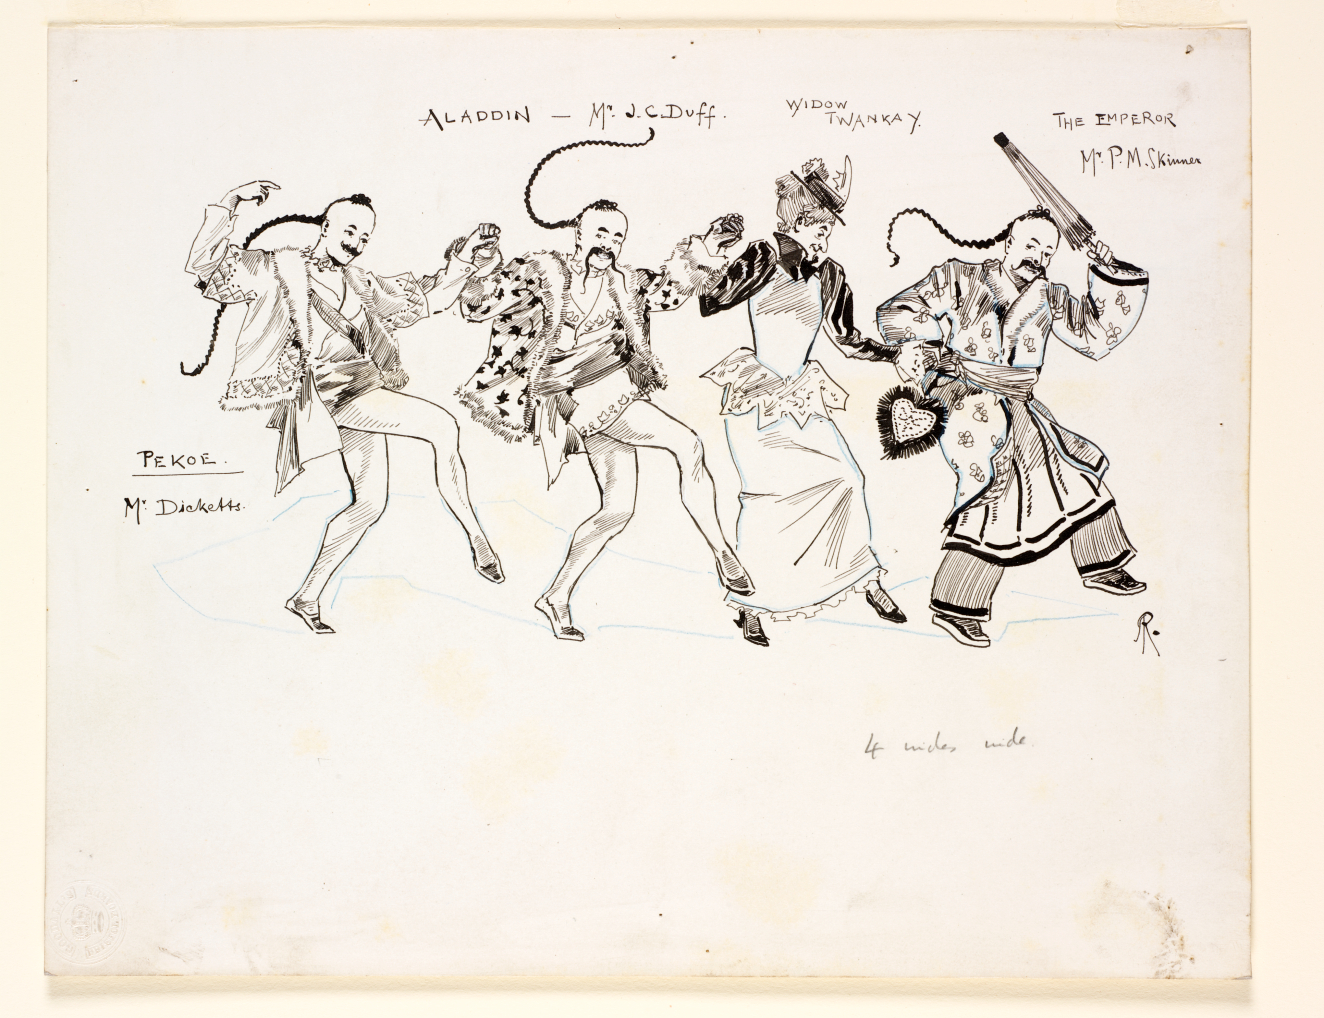 ALADDIN — Mr. J.C. Duff.
WIDOW
TWANKAY.
THE EMPEROR
Mr. P. M. Skinner
PEKOE.
Mr. Dicketts.
R.
4